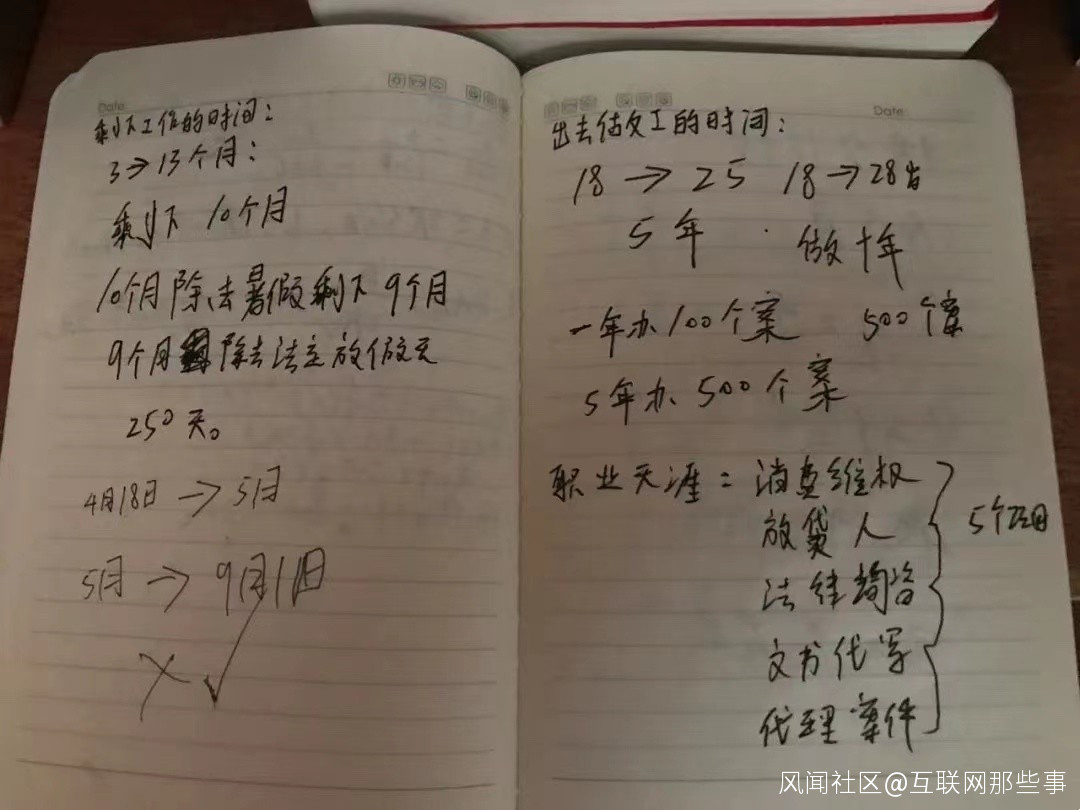 Date
剩下工作的时间:
3→13个月:
剩下 10个月
10个月除去暑假剩下 9个月
9个月除去法定放假天
250天。
4月18日 → 5月
5月 → 9月1日
×✓
Date
出去估复工的时间:
18 → 25 18→28岁
5年 · 做十年
一年办100个案 500个案
5年办500个案
职业天涯: 消费维权
放贷人
法律
文书代写
代理案件
5个项目
风闻社区@互联网那些事